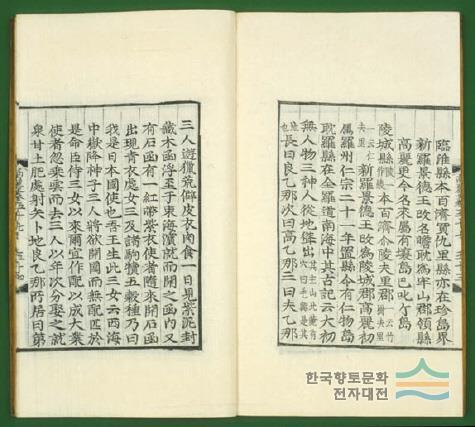 臨淮縣本百濟買仇里縣亦在珍島界
新羅景德王改名瞻耽爲牢山郡領縣
高麗更今名來屬有壤島巴叱个島
陵城縣
本百濟尒陵夫里
新羅景德王改爲陵城郡高麗初
屬羅州仁宗二十一年置縣令有仁物島
耽羅縣在全羅道南海中其古記云太初
無人物三神人從地聳出
長曰良乙那次曰高乙那三曰夫乙那
三人遊獵荒僻皮衣肉食一日見紫泥封
藏木函浮至于東海濱就而開之函內又
有石函有一紅帶紫衣使者隨來開石函
出現靑衣處女三及諸駒犢五穀種乃曰
我是日本國使也吾王生此三女云西海
中嶽降神子三人將欲開國而無配匹於
是命臣侍三女以來爾宜作配以成大業
使者忽乘雲而去三人以年次分娶之就
泉甘土肥處射矢卜地良乙那所居曰第
한국향토문화
전자대전